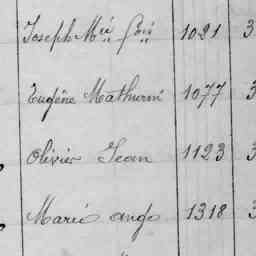 Joseph M.ie f.ois 1021 3
Eugène Mathurin 1077 3
Olivier Jean 1123 3
Marie ange 1318 3